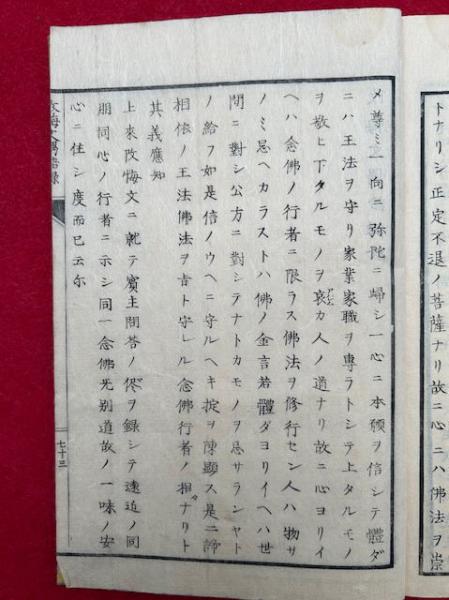 トナリシ正定不退ノ菩薩ナリ故ニ心ニハ佛法ヲ崇
メ尊ミ一向ニ弥陀ニ帰シ一心ニ本願ヲ信シテ體ダ
ニハ王法ヲ守リ家業家職ヲ專ラトシテ上タルモノ
ヲ敬ヒ下タルモノヲ哀カ人ノ道ナリ故ニ心ヨリイ
ヘハ念佛ノ行者ニ限ラス佛法ヲ修行セン人ハ物サ
ノミ忌ヘカラストハ佛ノ金言若體ダヨリイヘハ世
間ニ對シ公方ニ對シテナトカモノヲ忌サランヤト
ノ給フ如是信ノウヘニ守ルヘキ掟ヲ陳顯ス是二諦
相依ノ王法佛法ヲ吉ト守レル念佛行者ノ相ナリト
其義應知
上來改悔文ニ就テ賓主問答ノ侭ヲ録シテ遠近ノ同
朋同心ノ行者ニ示シ同一念佛无別道故ノ一味ノ安
心ニ住シ度而已云尓
七十三